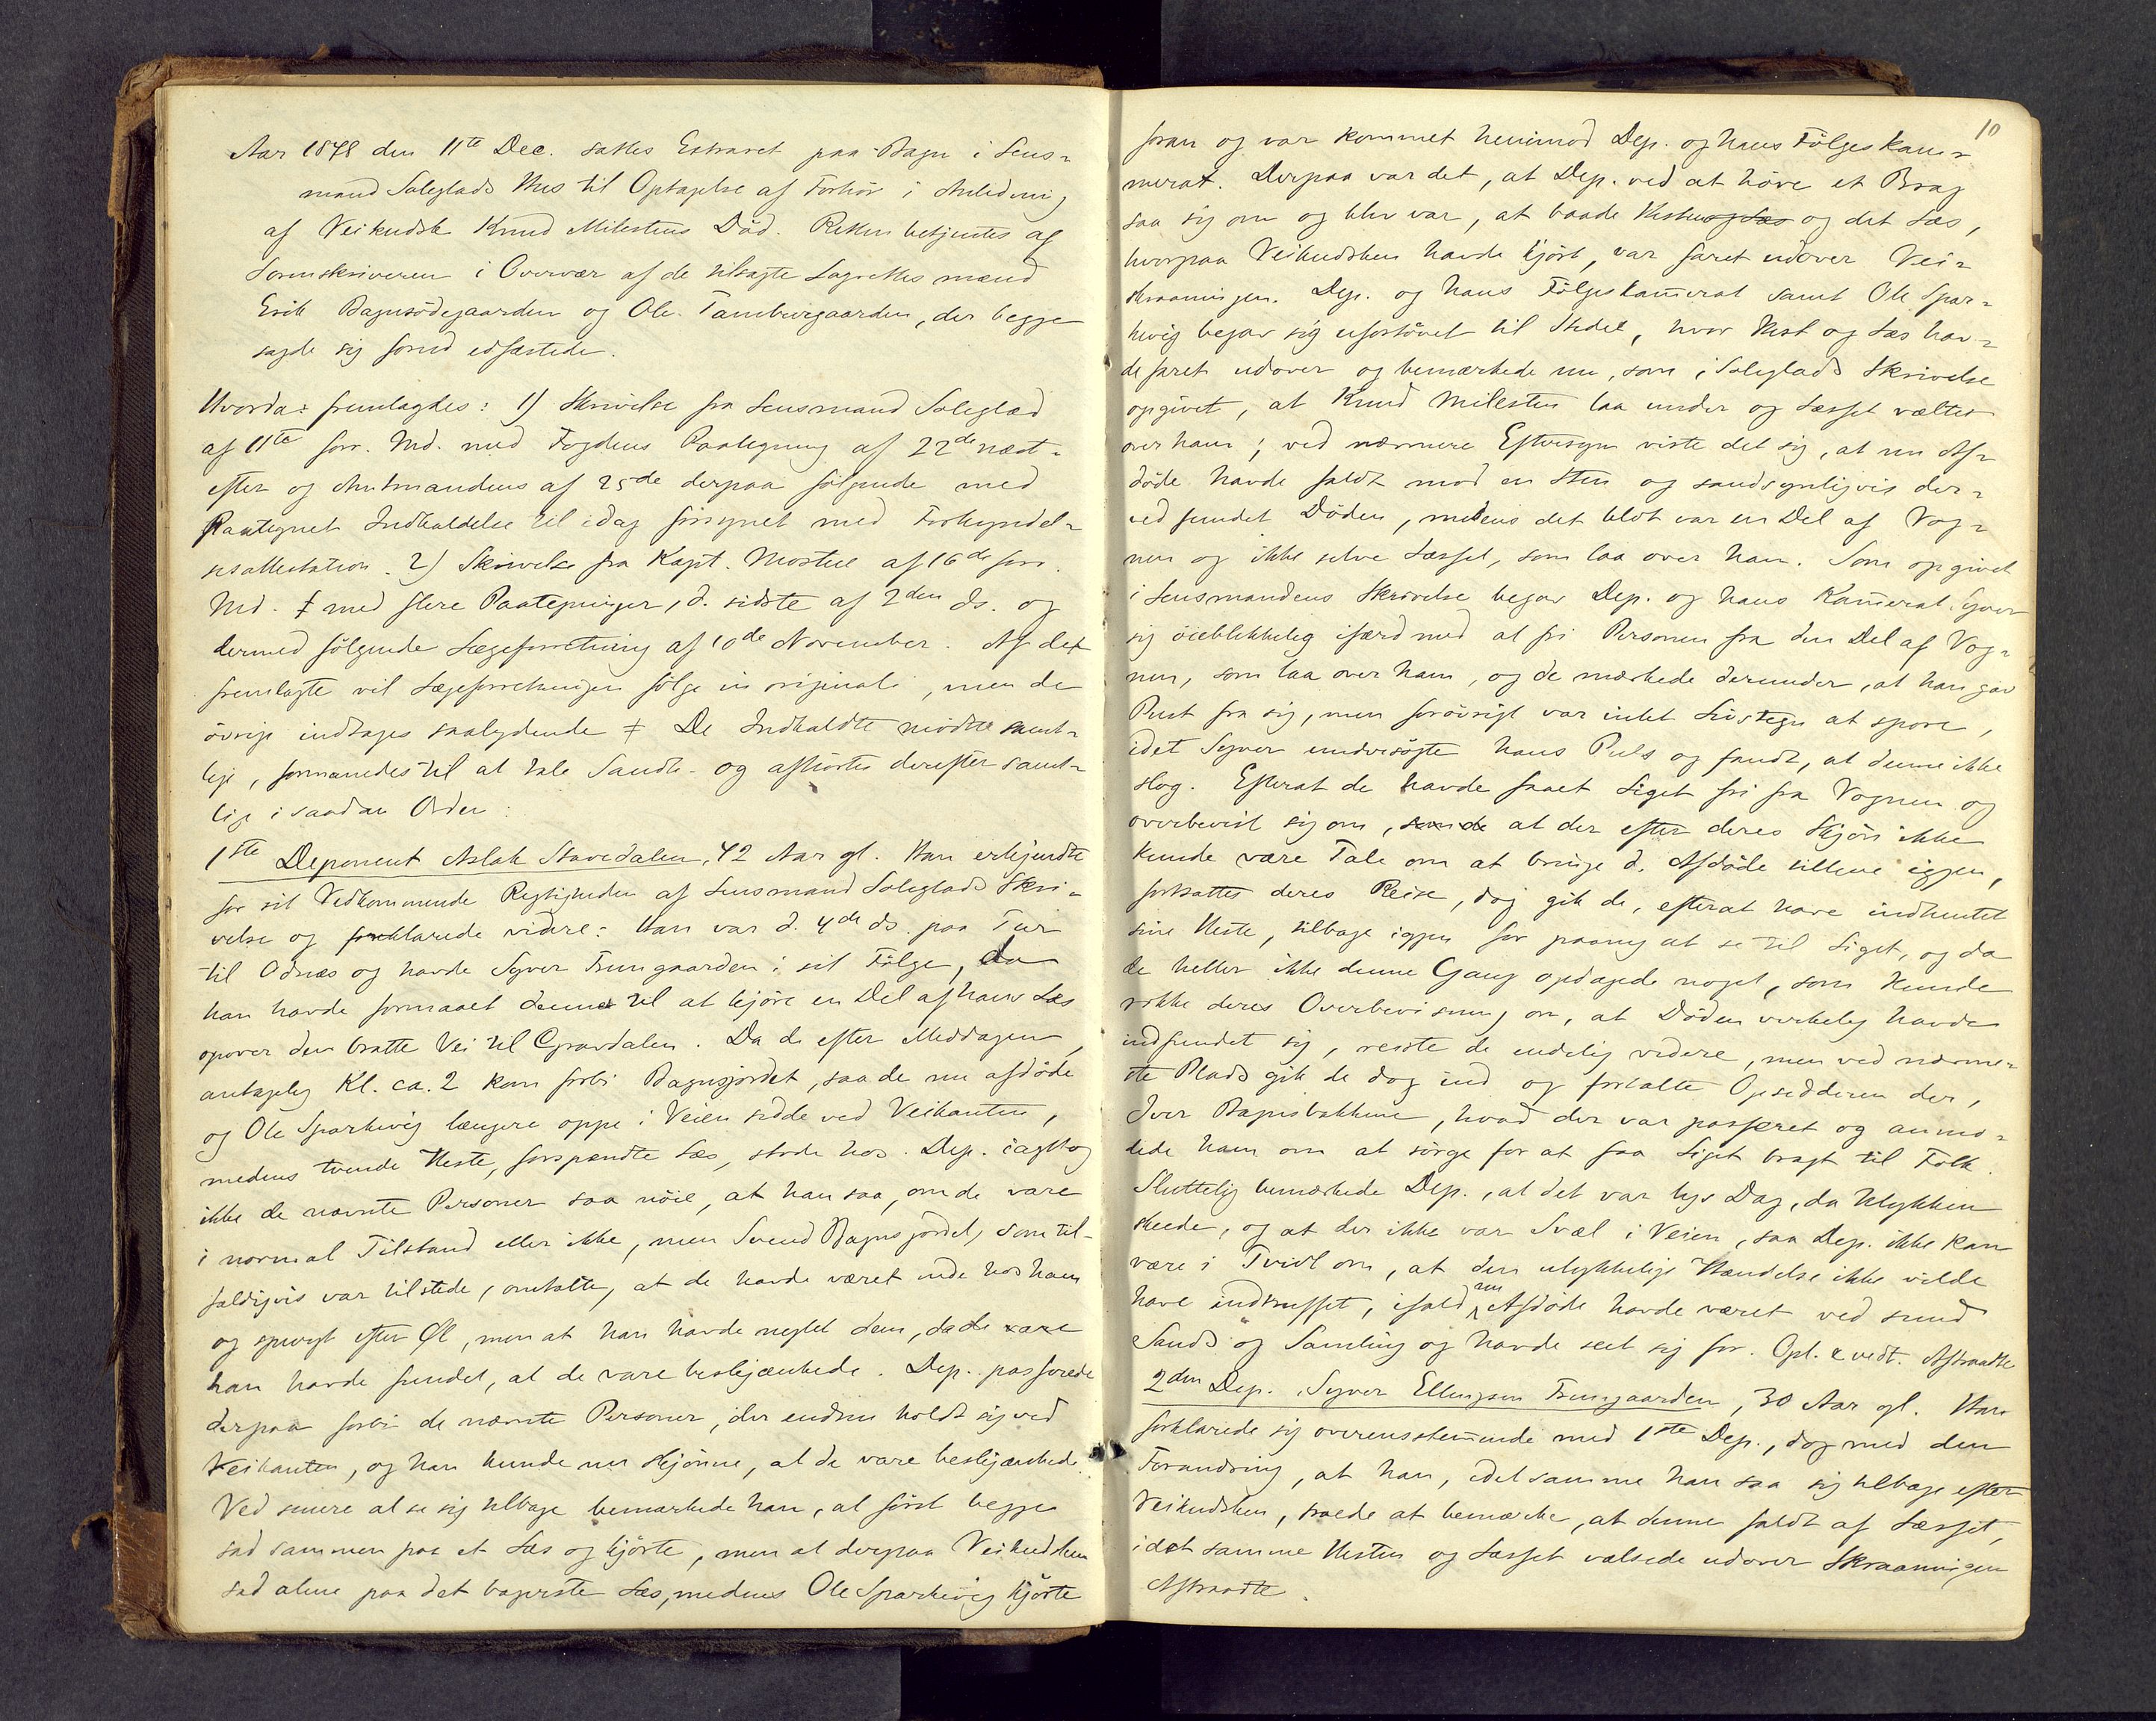 Aar 1878 den 11te Dec. sattes Extraret paa Bagn i Lens-
mand Saleglads Hus til Optagelse af Forhör i Anledning
af Veikudsk Knud Milestens Död. Retten betjentes af
Sorenskriveren i Overvær af de tilsagte Lagrettesmænd
Erik Bagnsödegaarden og Ole Tamburgaarden, der begge
sagde sig forud edfæstede.
Hvorda fremlagdes: 1) Skrivelse fra Lensmand Saleglad
af 11te forr. Md. med Fogdens Paategning af 22de næst-
efter og Amtmandens af 25de derpaa fölgende med
Paategnet Indkaldelse til idag forsynet med Forkyndel-
sesattestation. 2) Skrivelse fra Kapt. Mostue af 16de forr.
Md. ‡ med flere Paategninger, d. sidste af 2den ds. og
dermed fölgende Lægeforretning af 10de November. Af det
fremlagte vil Lægeforretningen fölge in originali, men de
övrige indtages saalydende ‡ De Indkaldte mödte samt-
lige, formanedes til at tale Sandh. og afhörtes derefter samt-
lige i saadan Orden:
1ste Deponent Aslak Stavedalen, 42 Aar gl. Han erkjendte
for sit Vedkommende Rigtigheden af Lensmand Saleglads Skri-
velse og forklarede videre: Han var d. 4de ds. paa Tur
til Odnæs og havde Syver Trungaarden i sit Fölge, da
han havde formaaet denne til at kjöre en Del af hans Læs
opover den bratte Vei til Gravdalen. Da de efter Middagen,
antagelig Kl. ca. 2 kom forbi Bagnsjordet, saa de nu afdöde
og Ole Sparkevig længere oppe i Veien sidde ved Veikanten,
medens tvende Heste, forspændte Læs, stode hos. Dep. iagttog
ikke de nævnte Personer saa nöie, at han saa, om de vare
i normal Tilstand eller ikke, men Svend Bagnsjordet, som til-
fældigvis var tilstede, omtalte, at de havde været inde hos ham
og spurgt efter Øl, men at han havde negtet dem, da de vare
han havde fundet, at de vare beskjænkede. Dep. passerede
derpaa forbi de nævnte Personer, der endnu holdt sig ved
Veikanten, og han kunde nu skjönne, at de vare beskjænkede.
Ved senere at se sig tilbage bemærkede han, at först begge
sad sammen paa et Læs og kjörte, men at derpaa Veikudsken
sad alene paa det bagerste Læs, medens Ole Sparkevig kjörte
10
foran og var kommet henimod Dep. og hans Fölgeskam-
merat. Derpaa var det, at Dep. ved at höre et Brag
saa sig om og blev var, at baade Hesten og Læs og det Læs,
hvorpaa Veikudsken havde kjört, var faret udover Vei-
skraaningen. Dep. og hans Fölgeskamerat samt Ole Spar-
kevig begav sig ufortövet til Stedet, hvor Hest og Læs hav-
de faret udover og bemærkede nu, som i Saleglads Skrivelse
opgivet, at Knud Milesten laa under og Læsset væltet
over ham; ved nærmere Eftersyn viste det sig, at nu Af-
döde havde faldt mod en Sten og sandsynligvis der-
ved fundet Döden, medens det blot var en Del af Vog-
nen og ikke selve Læsset, som laa over ham. Som opgivet
i Lensmandens Skrivelse begav Dep. og hans Kamerat Syver
sig öieblikkelig ifærd med at fri Personen fra den Del af Vog-
nen, som laa over ham, og de mærkede derunder, at han gav
Pust fra sig, men forövrigt var intet Livstegn at spore,
idet Syver undersögte hans Puls og fandt, at denne ikke
slog. Efterat de havde faaet Liget fri fra Vognen og
overbevist sig om, at der efter deres Skjön ikke
kunde være Tale om at bringe d. Afdöde tillive igjen,
fortsattes deres Reise, dog gik de, efterat have indhentet
sine Heste, tilbage igjen for paany at se til Liget, og da
de heller ikke denne Gang opdagede noget, som kunde
rokke deres Overbevisning om, at Döden virkelig havde
indfundet sig, reiste de endelig videre, men ved nærme-
ste Plads gik de dog ind og fortalte Opsidderen der,
Iver Bagnsbakkene, hvad der var passeret og anmo-
dede ham om at sörge for at faa Liget bragt til Folk.
Sluttelig bemærkede Dep., at det var lys Dag, da Ulykken
skeede, og at der ikke var Svæl i Veien, saa Dep. ikke kan
være i Tvivl om, at den ulykkelige Hændelse ikke vilde
have indtruffet, ifald nu Afdöde havde været ved sund
Sands og Samling og havde seet sig for. Opl. & vedt. Aftraadte
2den Dep. Syver Ellingsen Trungaarden, 30 Aar gl. Han
forklarede sig overensstemmende med 1ste Dep., dog med den
Forandring, at han, idet samme han saa sig tilbage efter
Veikudsken, troede at bemærke, at denne faldt af Læsset,
idet samme Hesten og Læsset væltede udover Skraaningen
Aftraadte.